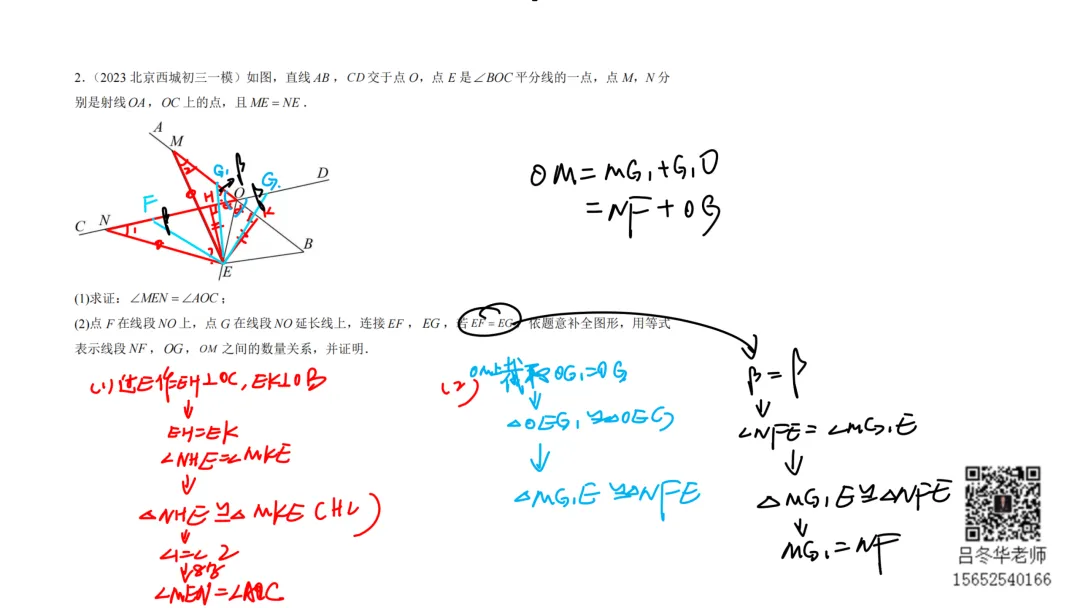 2.（2023 北京西城初三一模）如图，直线 AB，CD 交于点 O，点 E 是∠BOC 平分线的一点，点 M，N 分
别是射线 OA，OC 上的点，且 ME = NE．
A
M
G₁
β
D
O
G
β
H
K
F
β
C
N
1
2
B
E
OM = MG₁ + G₁O
= NF + OG
(1)求证：∠MEN = ∠AOC；
(2)点 F 在线段 NO 上，点 G 在线段 NO 延长线上，连接 EF，EG，若 EF = EG，依题意补全图形，用等式
表示线段 NF，OG，OM 之间的数量关系，并证明．
(1) 过E作EH⊥OC, EK⊥OB
↓
EH=EK
∠NHE=∠MKE
↓
△NHE≌△MKE (HL)
↓
∠1=∠2
↓8字
∠MEN=∠AOC
(2) OM上截取OG₁=OG
↓
△OEG₁≌△OEG
↓
△MG₁E≌△NFE
β=β
↓
∠NFE=∠MG₁E
↓
△MG₁E≌△NFE
↓
MG₁=NF
吕冬华老师
15652540166